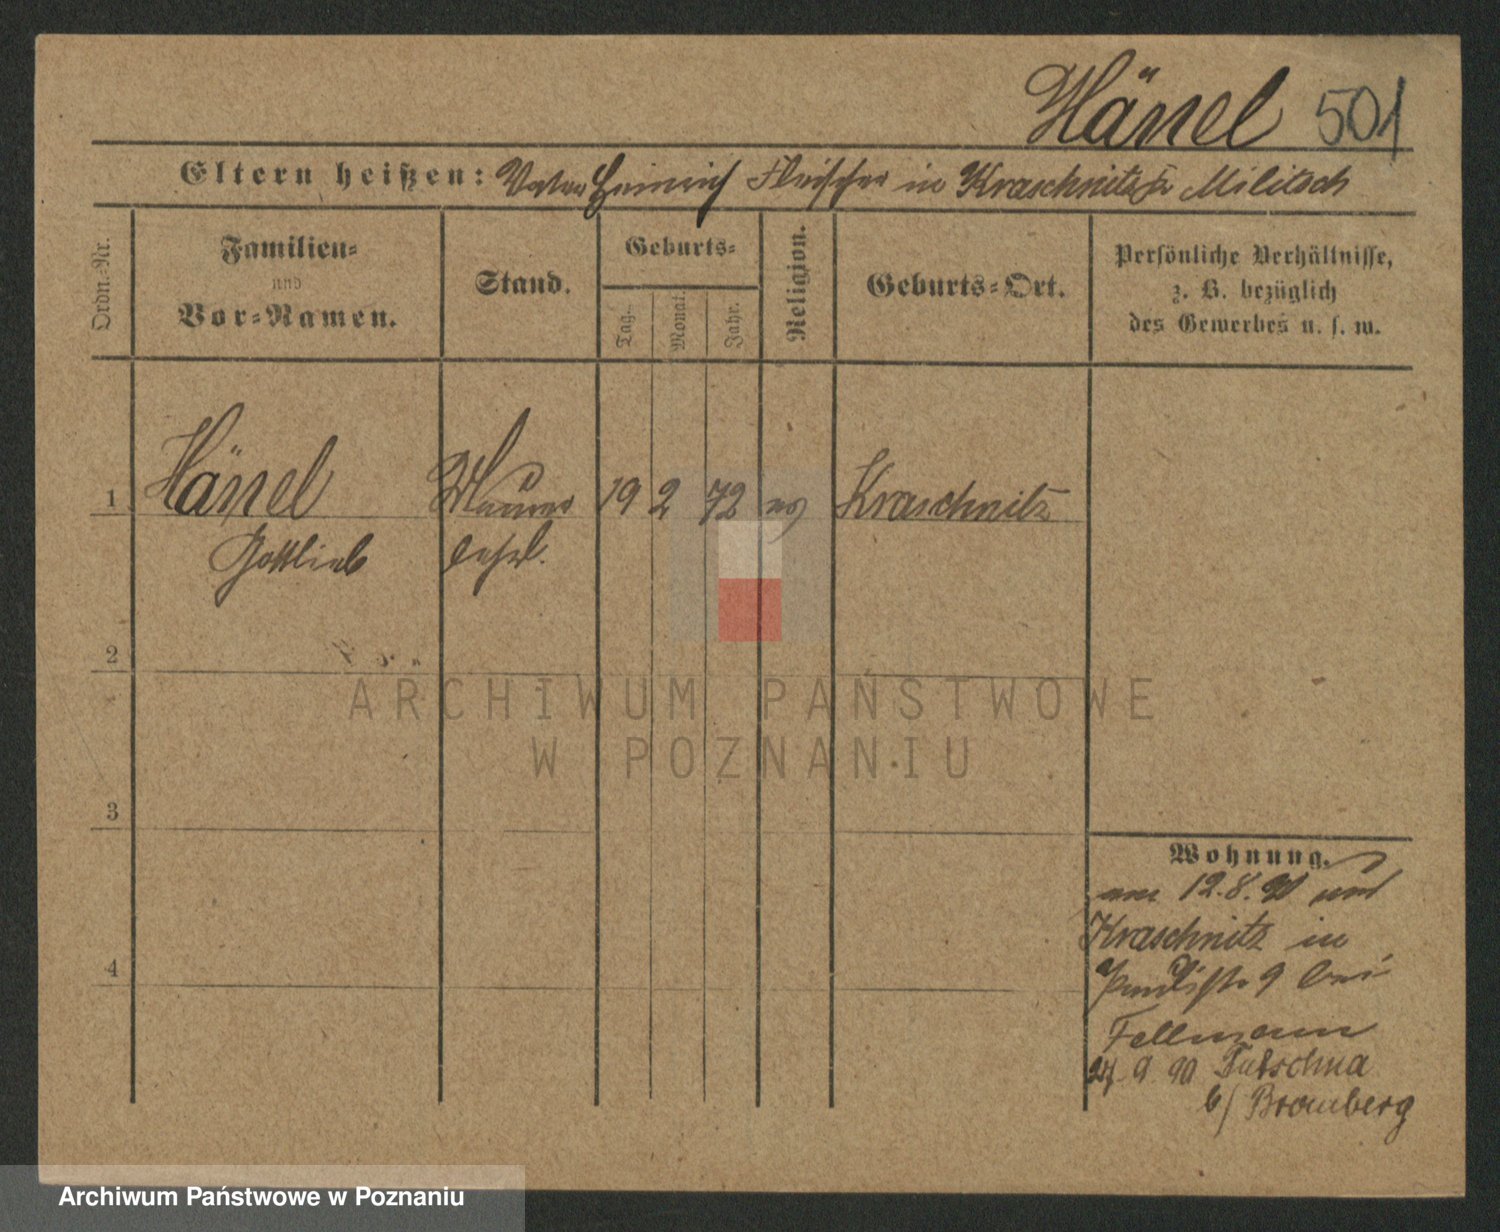 Hänel 501
Eltern heißen: Vater Heinrich Fleischer in Kraschnitz Militsch
Ordn.-Nr.
Familien-
und
Vor-Namen.
Stand.
Geburts-
Tag.
Monat.
Jahr.
Religion.
Geburts-Ort.
Persönliche Verhältnisse,
z. B. bezüglich
des Gewerbes u. s. w.
1 Hänel Maurer 19 2 72 ev Kraschnitz
Gottlieb lehrl.
2
3
4
Wohnung.
12.8.90
Kraschnitz in
9 bei
Fellmann
24. 9. 90
b/ Bromberg
ARCHIWUM PAŃSTWOWE
W POZNANIU
Archiwum Państwowe w Poznaniu